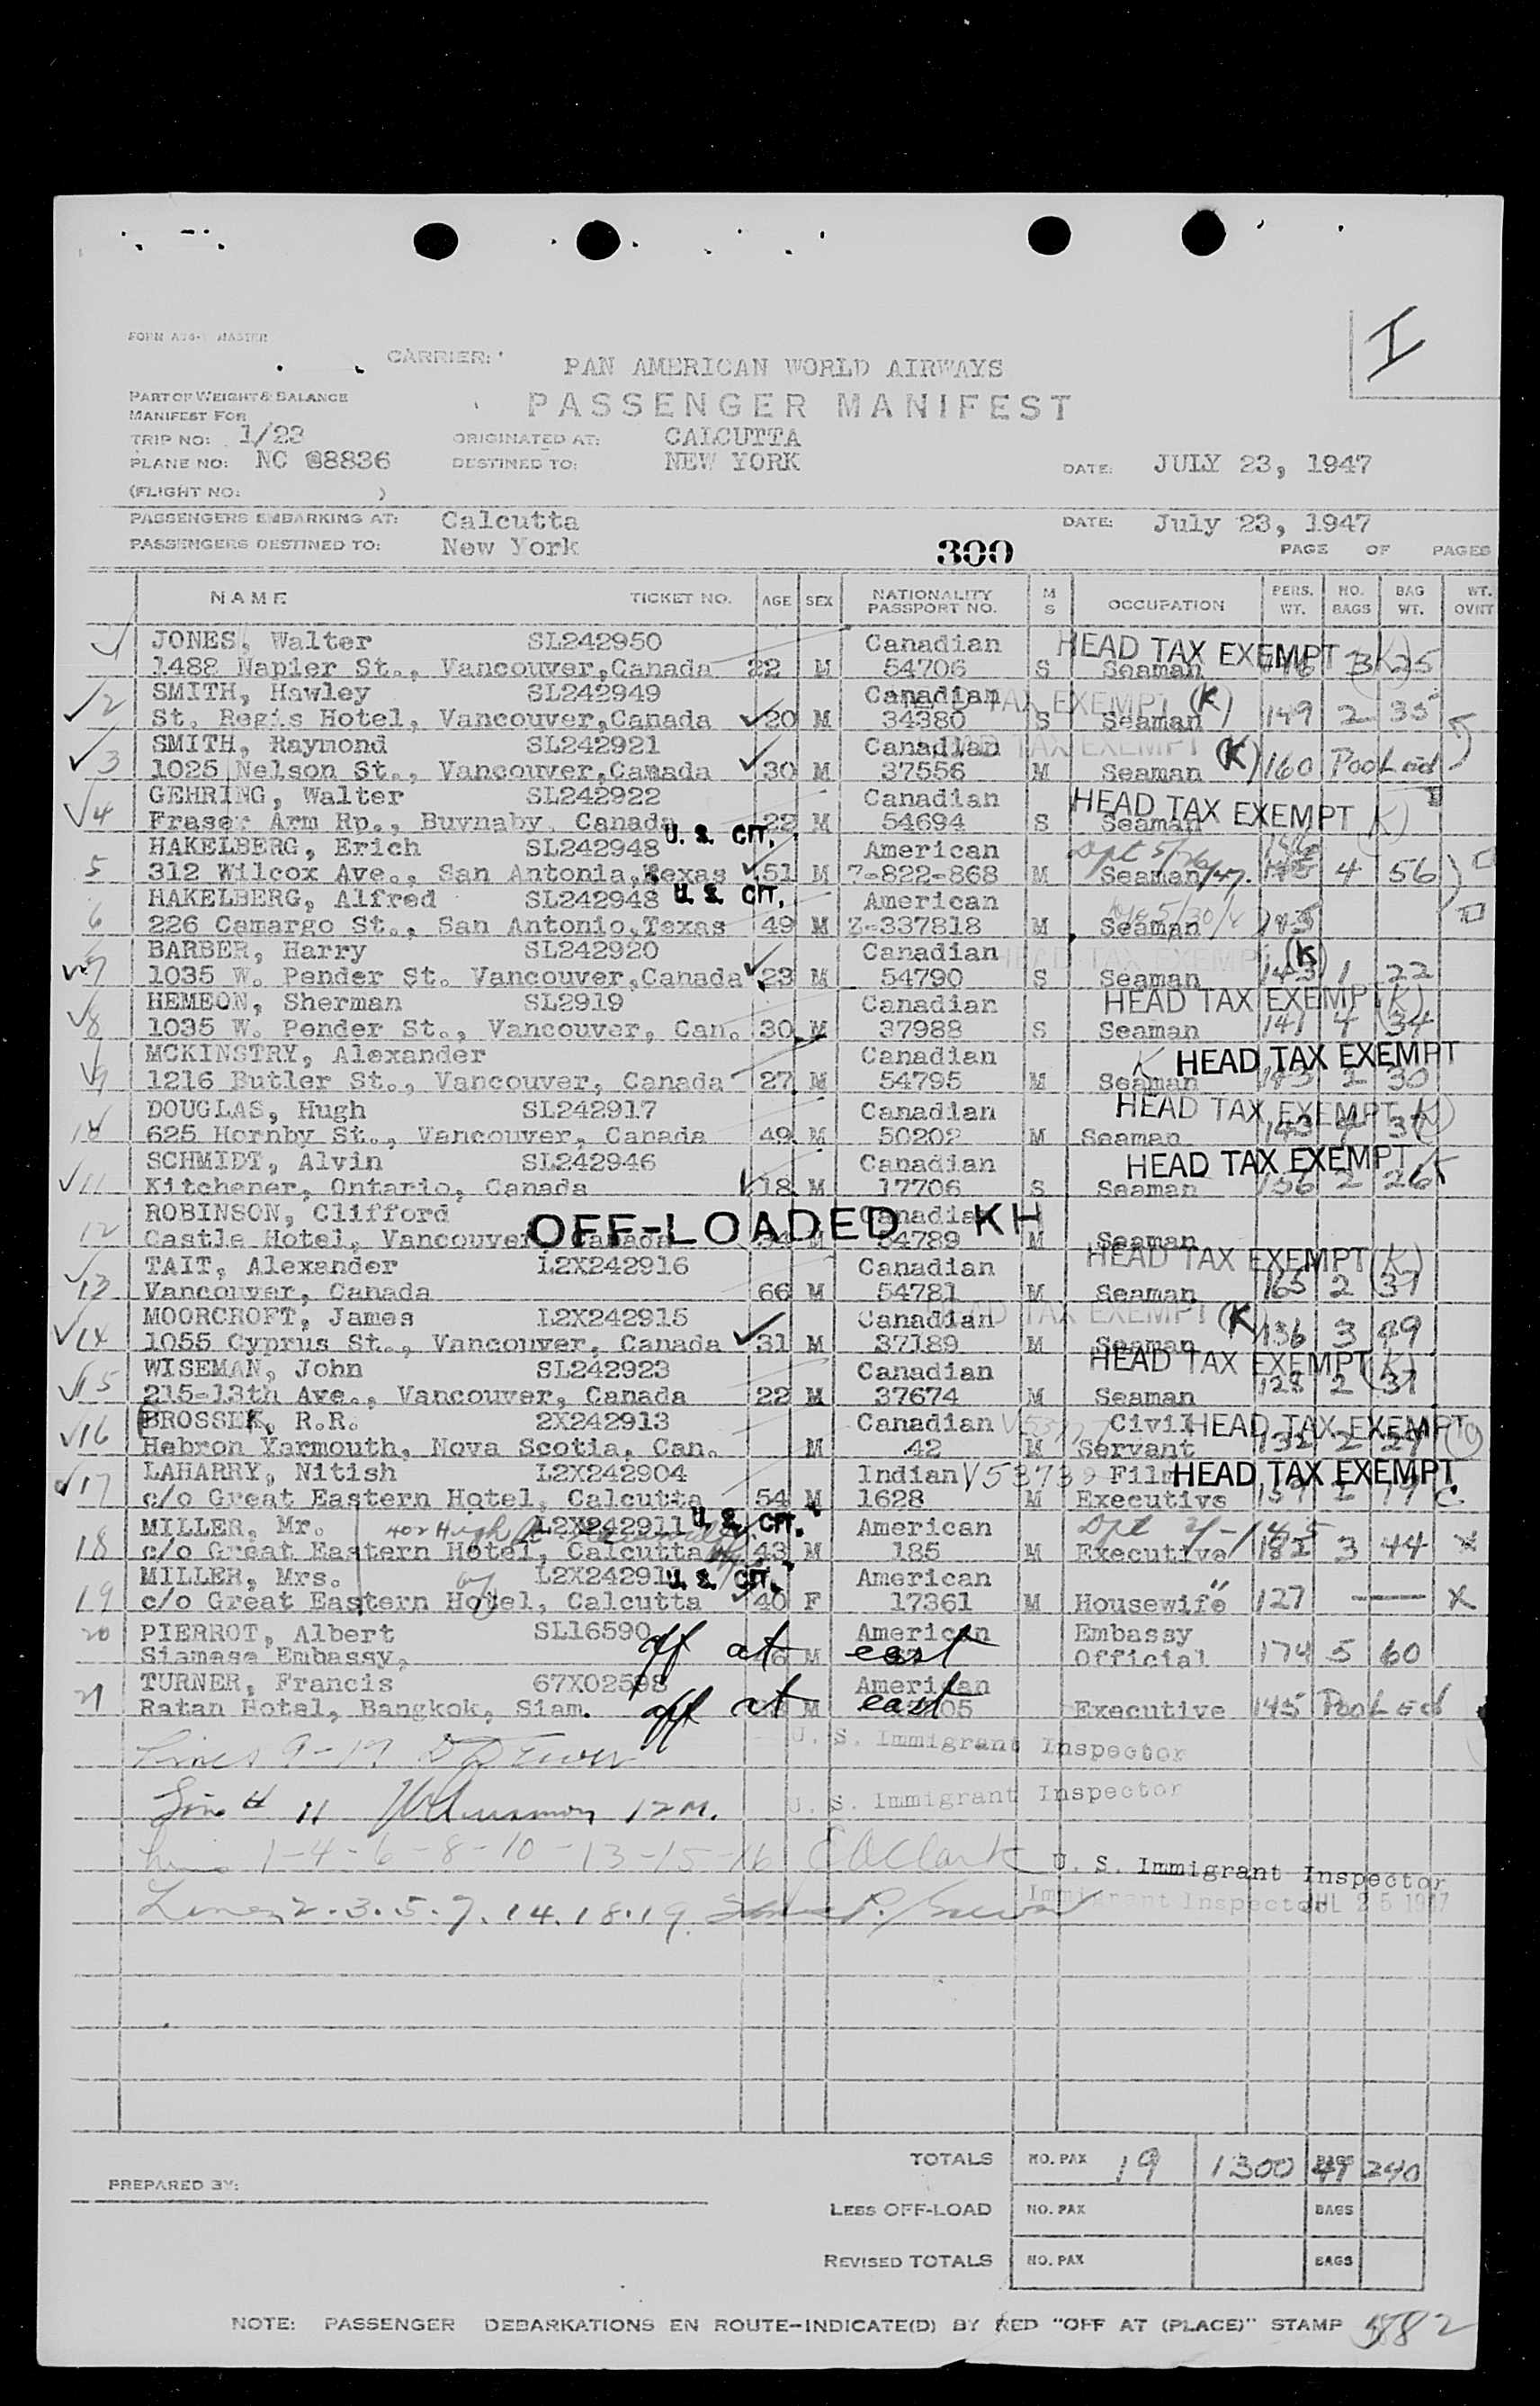 FORM MASTER
I
CARRIER: PAN AMERICAN WORLD AIRWAYS
PART OF WEIGHT & BALANCE
MANIFEST FOR
PASSENGER MANIFEST
TRIP NO: 1/23 ORIGINATED AT: CALCUTTA
PLANE NO: NC @8836 DESTINED TO: NEW YORK DATE: JULY 23, 1947
(FLIGHT NO: )
PASSENGERS EMBARKING AT: Calcutta DATE: July 23, 1947
PASSENGERS DESTINED TO: New York 300 PAGE OF PAGES
NAME TICKET NO. AGE SEX NATIONALITY PASSPORT NO. M S OCCUPATION PERS. WT. NO. BAGS BAG WT. WT. OVWT
JONES, Walter SL242950 Canadian HEAD TAX EXEMPT
1488 Napier St., Vancouver,Canada 22 M 54706 S Seaman 3 35
SMITH, Hawley SL242949 Canadian TAX EXEMPT (K)
2 St. Regis Hotel, Vancouver,Canada 20 M 34380 S Seaman 149 2 35
SMITH, Raymond SL242921 Canadian TAX EXEMPT (K)
3 1025 Nelson St., Vancouver,Canada 30 M 37556 M Seaman 160 Pooled
GEHRING, Walter SL242922 Canadian HEAD TAX EXEMPT K)
4 Fraser Arm Rp., Buvnaby, Canada 22 M 54694 S Seaman
HAKELBERG, Erich SL242948 U. S. CIT. American Dpt 5/26/47.
5 312 Wilcox Ave., San Antonia,Texas 51 M Z-822-868 M Seaman 4 56
HAKELBERG, Alfred SL242948 U. S. CIT. American
6 226 Camargo St., San Antonio,Texas 49 M Z-337818 M Seaman 185
BARBER, Harry SL242920 Canadian HEAD TAX EXEMPT (K)
7 1035 W. Pender St. Vancouver,Canada 23 M 54790 S Seaman 143 1 22
HEMEON, Sherman SL2919 Canadian HEAD TAX EXEMPT (K)
8 1035 W. Pender St., Vancouver, Can. 30 M 37988 S Seaman 141 4 34
MCKINSTRY, Alexander Canadian K HEAD TAX EXEMPT
9 1216 Butler St., Vancouver, Canada 27 M 54795 M Seaman 183 2 30
DOUGLAS, Hugh SL242917 Canadian HEAD TAX EXEMPT K)
10 625 Hornby St., Vancouver, Canada 49 M 50202 M Seaman 143 4
SCHMIDT, Alvin SL242946 Canadian HEAD TAX EXEMPT K
11 Kitchener, Ontario, Canada 18 M 17706 S Seaman 156 2 26
ROBINSON, Clifford OFF-LOADED Canadian KH
12 Castle Hotel, Vancouver, Canada M 54789 M Seaman
TAIT, Alexander L2X242916 Canadian HEAD TAX EXEMPT (K)
13 Vancouver, Canada 66 M 54781 M Seaman 165 2 37
MOORCROFT, James L2X242915 Canadian TAX EXEMPT (K)
14 1055 Cyprus St., Vancouver, Canada 31 M 37189 M Seaman 136 3 49
WISEMAN, John SL242923 Canadian HEAD TAX EXEMPT (K)
15 215-13th Ave., Vancouver, Canada 22 M 37674 M Seaman 128 2 37
BROSSEK, R.R. 2X242913 Canadian Civil HEAD TAX EXEMPT
16 Hebron Yarmouth, Nova Scotia, Can. M 42 M Servant 132 2 29
LAHARRY, Nitish L2X242904 Indian Film HEAD TAX EXEMPT.
17 c/o Great Eastern Hotel, Calcutta 54 M 1628 M Executive 157 2 19
MILLER, Mr. 402 High St L2X242911 U. S. CIT. American
18 c/o Great Eastern Hotel, Calcutta 43 M 185 M Executive 182 3 44 x
MILLER, Mrs. L2X24291 U. S. CIT. American "
19 c/o Great Eastern Hotel, Calcutta 40 F 17361 M Housewife 127 — x
20 PIERROT, Albert SL16590 off at east American Embassy
Siamese Embassy, M Official 174 5 60
TURNER, Francis 67X02598 American
21 Ratan Hotel, Bangkok, Siam. off at east M 05 Executive 145 Pooled
Lines 9-17 U. S. Immigrant Inspector
Line # 11 12 M. U. S. Immigrant Inspector
1-4-6-8-10-13-15-16 C A Clark U. S. Immigrant Inspector
Lines 2.3.5.7.14.18.19. Immigrant Inspector JUL 25 1947
TOTALS NO. PAX 19 1300 BAGS 41 240
PREPARED BY:
LESS OFF-LOAD NO. PAX BAGS
REVISED TOTALS NO. PAX BAGS
NOTE: PASSENGER DEBARKATIONS EN ROUTE-INDICATE(D) BY RED "OFF AT (PLACE)" STAMP